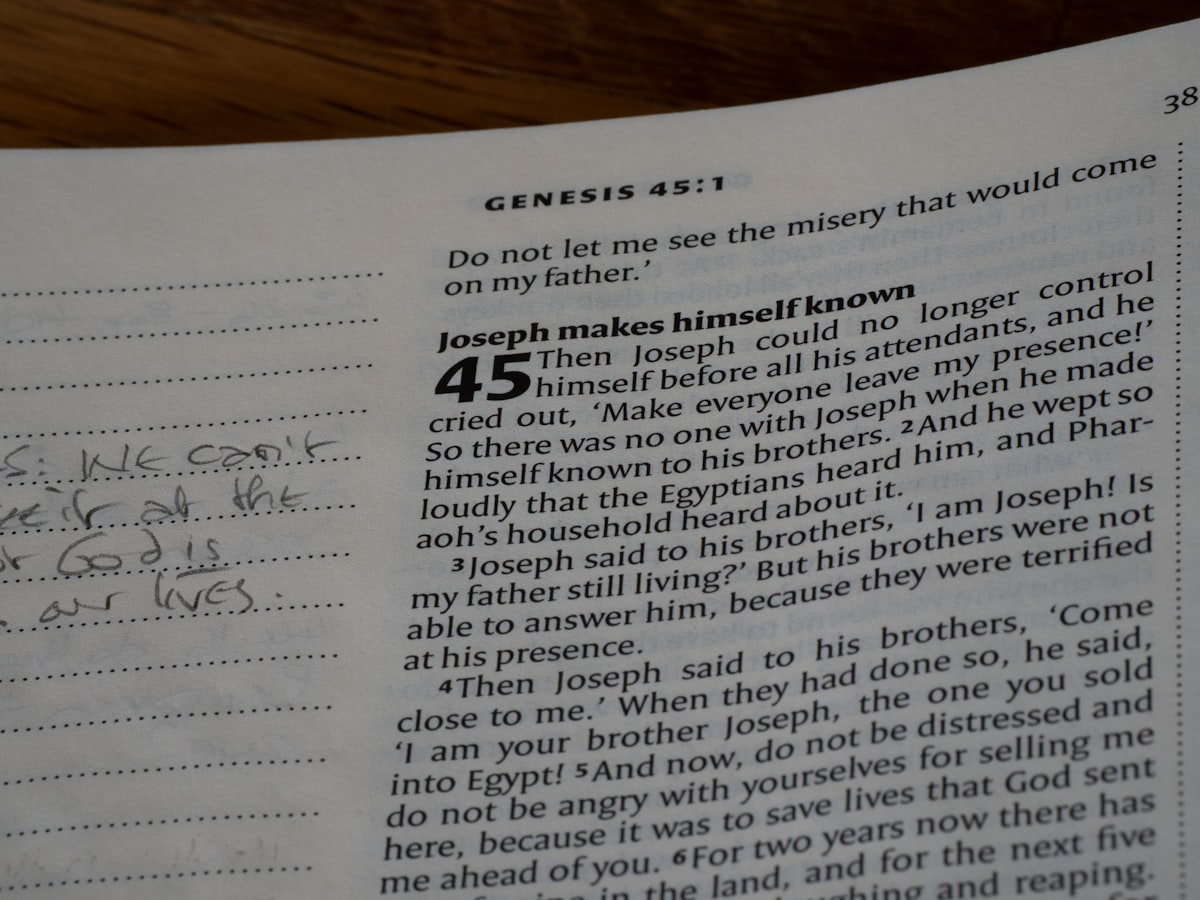 38
GENESIS 45:1
Do not let me see the misery that would come
on my father.’
Joseph makes himself known
45 Then Joseph could no longer control
himself before all his attendants, and he
cried out, ‘Make everyone leave my presence!’
So there was no one with Joseph when he made
himself known to his brothers. 2 And he wept so
loudly that the Egyptians heard him, and Phar-
aoh’s household heard about it.
3 Joseph said to his brothers, ‘I am Joseph! Is
my father still living?’ But his brothers were not
able to answer him, because they were terrified
at his presence.
4 Then Joseph said to his brothers, ‘Come
close to me.’ When they had done so, he said,
‘I am your brother Joseph, the one you sold
into Egypt! 5 And now, do not be distressed and
do not be angry with yourselves for selling me
here, because it was to save lives that God sent
me ahead of you. 6 For two years now there has
in the land, and for the next five
and reaping.
We can't
at the
God is
our lives.